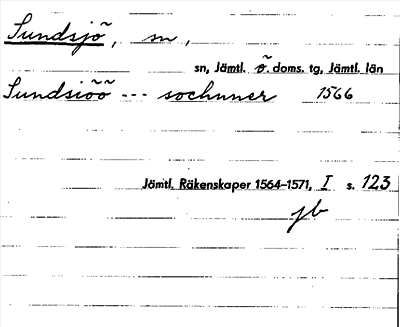 Sundsjö, sn,
sn, Jämtl. ö. doms. tg, Jämtl. län
Sundsiöö --- sochnner 1566
Jämtl. Räkenskaper 1564-1571, I s. 123
jb